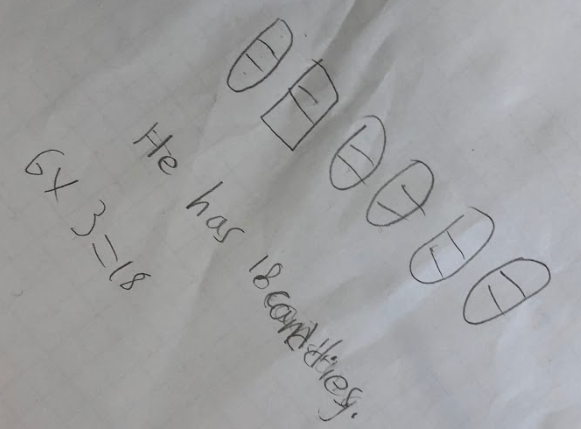 He has 18 candies.
6 x 3 = 18